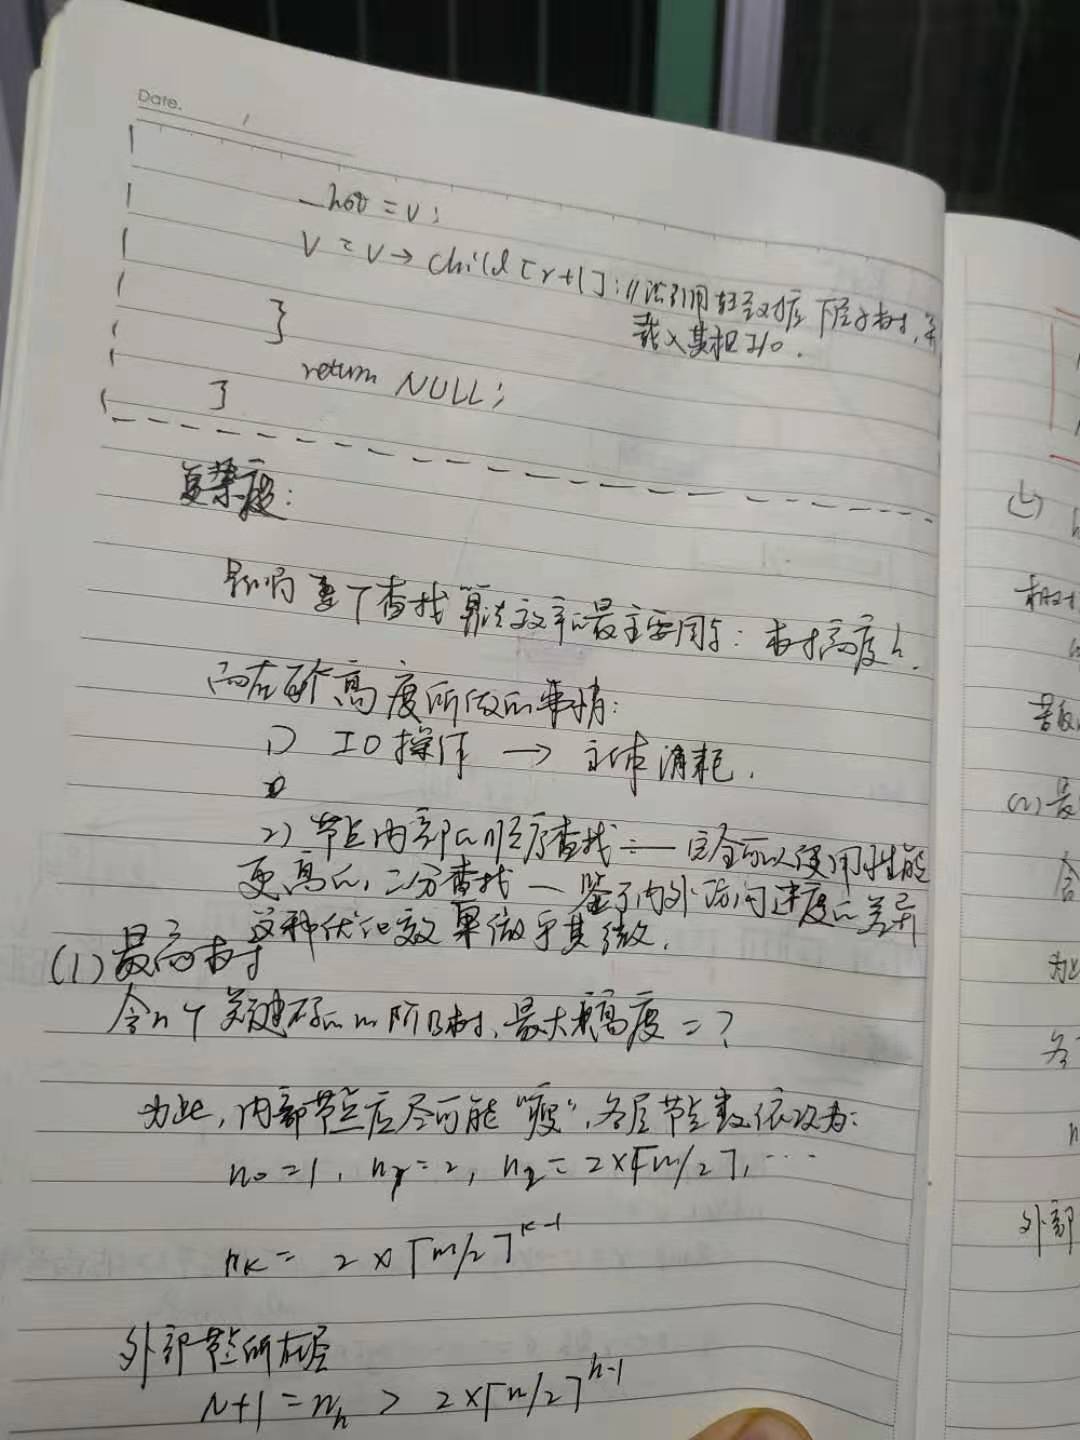 Date.
_hot = v;
v = v → child [r+1]; // 沿引用转至对应下层子树,并
载入其根 I/O.
}
return NULL;
}
复杂度:
影响 查找算法效率的最主要因素: 树高度 h.
而在每个高度所做的事情:
1) IO操作 → 主体消耗.
2) 节点内部的顺序查找 — 完全可以使用性能
更高的,二分查找 — 鉴于内外访问速度的差异
这种优化效果微乎其微.
(1) 最高树
含n个关键码的m阶B树,最大高度 = ?
为此,内部节点应尽可能“瘦”,各层节点数依次为:
n₀ = 1, n₁ = 2, n₂ = 2×⌈m/2⌉, ⋯
nₖ = 2 × ⌈m/2⌉ᵏ⁻¹
外部节点所在层
N+1 = nₕ > 2×⌈m/2⌉ʰ⁻¹
外部